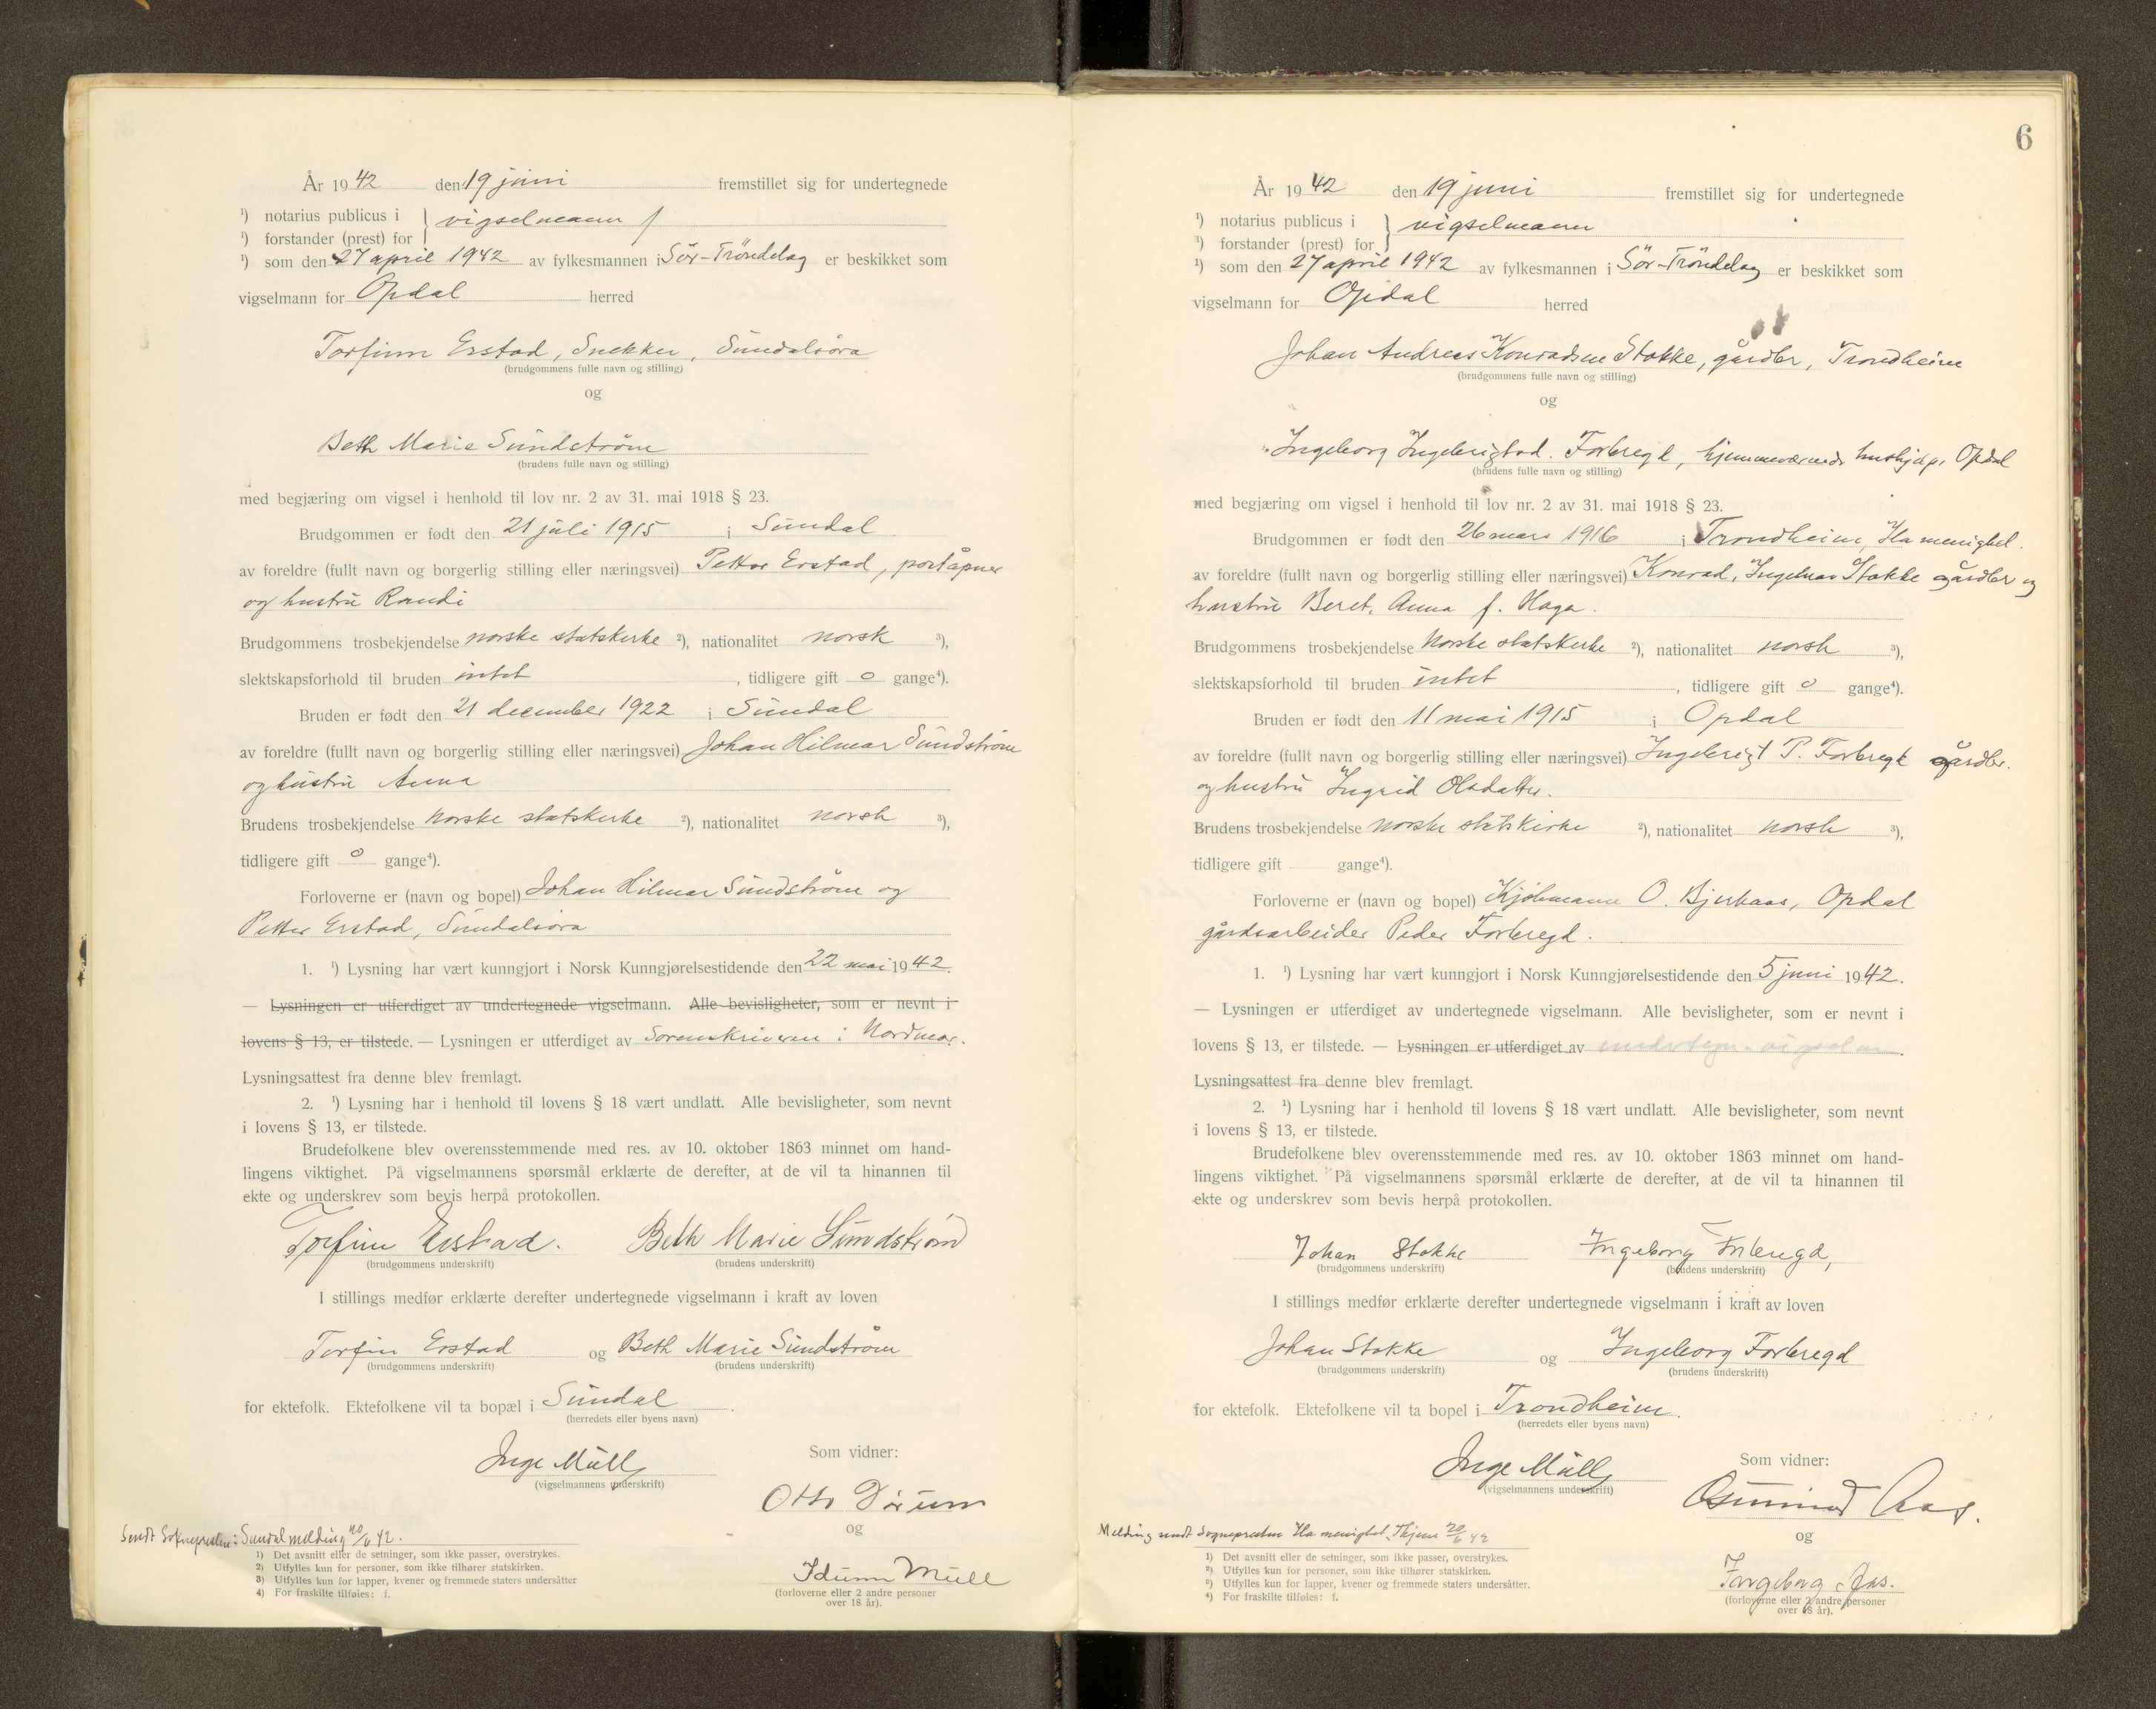 År 1942 den 19 juni fremstillet sig for undertegnede
¹) notarius publicus i } vigselmann /
¹) forstander (prest) for
¹) som den 27 april 1942 av fylkesmannen i Sör-Tröndelag er beskikket som
vigselmann for Opdal herred
Torfinn Erstad, Snekker, Sundalsöra
(brudgommens fulle navn og stilling)
og
Beth Marie Sundström
(brudens fulle navn og stilling)
med begjæring om vigsel i henhold til lov nr. 2 av 31. mai 1918 § 23.
Brudgommen er født den 21 juli 1915 i Sundal
av foreldre (fullt navn og borgerlig stilling eller næringsvei) Petter Erstad, poståpner
og hustru Randi
Brudgommens trosbekjendelse norske statskirke ²), nationalitet norsk ³),
slektskapsforhold til bruden intet, tidligere gift 0 gange⁴).
Bruden er født den 21 december 1922 i Sundal
av foreldre (fullt navn og borgerlig stilling eller næringsvei) Johan Hilmar Sundström
og hustru Anna
Brudens trosbekjendelse norske statskirke ²), nationalitet norsk ³),
tidligere gift 0 gange⁴).
Forloverne er (navn og bopel) Johan Hilmar Sundström og
Petter Erstad, Sundalsöra
1. ¹) Lysning har vært kunngjort i Norsk Kunngjørelsestidende den 22 mai 1942.
— Lysningen er utferdiget av undertegnede vigselmann. Alle bevisligheter, som er nevnt i
lovens § 13, er tilstede. — Lysningen er utferdiget av Sorenskriveren i Nordmør.
Lysningsattest fra denne blev fremlagt.
2. ¹) Lysning har i henhold til lovens § 18 vært undlatt. Alle bevisligheter, som nevnt
i lovens § 13, er tilstede.
Brudefolkene blev overensstemmende med res. av 10. oktober 1863 minnet om hand-
lingens viktighet. På vigselmannens spørsmål erklærte de derefter, at de vil ta hinannen til
ekte og underskrev som bevis herpå protokollen.
Torfinn Erstad. Beth Marie Sundström
(brudgommens underskrift) (brudens underskrift)
I stillings medfør erklærte derefter undertegnede vigselmann i kraft av loven
Torfin Erstad og Beth Marie Sundström
(brudgommens underskrift) (brudens underskrift)
for ektefolk. Ektefolkene vil ta bopæl i Sundal.
(herredets eller byens navn)
Inge Müll
(vigselmannens underskrift)
Som vidner:
Otto Dörum
og
Idunn Müll
(forloverne eller 2 andre personer
over 18 år).
Sendt Soknepresten i Sundal melding 20/6 42.
1) Det avsnitt eller de setninger, som ikke passer, overstrykes.
2) Utfylles kun for personer, som ikke tilhører statskirken.
3) Utfylles kun for lapper, kvener og fremmede staters undersåtter
4) For fraskilte tilføies: f.
6
År 1942 den 19 juni fremstillet sig for undertegnede
¹) notarius publicus i } vigselmann
¹) forstander (prest) for
¹) som den 27 april 1942 av fylkesmannen i Sör-Tröndelag er beskikket som
vigselmann for Opdal herred
Johan Andreas Konradsen Stokke, gårdbr, Trondheim
(brudgommens fulle navn og stilling)
og
Ingeborg Ingebrigtsd. Forbregd, hjemmeværende hushjelp, Opdal
(brudens fulle navn og stilling)
med begjæring om vigsel i henhold til lov nr. 2 av 31. mai 1918 § 23.
Brudgommen er født den 26 mars 1916 i Trondheim, Ila menighet.
av foreldre (fullt navn og borgerlig stilling eller næringsvei) Konrad, Ingelnar Stokke gårdbr og
hustru Beret, Anna f. Haga.
Brudgommens trosbekjendelse Norske statskirke ²), nationalitet norsk ³),
slektskapsforhold til bruden intet, tidligere gift 0 gange⁴).
Bruden er født den 11 mai 1915 i Opdal
av foreldre (fullt navn og borgerlig stilling eller næringsvei) Ingebrigt P. Forbregd gårdbr.
og hustru Ingrid Olsdatter.
Brudens trosbekjendelse norske statskirke ²), nationalitet norsk ³),
tidligere gift gange⁴).
Forloverne er (navn og bopel) Kjöbmann O. Bjerkaas, Opdal
gårdsarbeider Peder Forbregd.
1. ¹) Lysning har vært kunngjort i Norsk Kunngjørelsestidende den 5 juni 1942.
— Lysningen er utferdiget av undertegnede vigselmann. Alle bevisligheter, som er nevnt i
lovens § 13, er tilstede. — Lysningen er utferdiget av undertegn. vigselm.
Lysningsattest fra denne blev fremlagt.
2. ¹) Lysning har i henhold til lovens § 18 vært undlatt. Alle bevisligheter, som nevnt
i lovens § 13, er tilstede.
Brudefolkene blev overensstemmende med res. av 10. oktober 1863 minnet om hand-
lingens viktighet. På vigselmannens spørsmål erklærte de derefter, at de vil ta hinannen til
ekte og underskrev som bevis herpå protokollen.
Johan Stokke Ingeborg Forbregd,
(brudgommens underskrift) (brudens underskrift)
I stillings medfør erklærte derefter undertegnede vigselmann i kraft av loven
Johan Stokke og Ingeborg Forbregd
(brudgommens underskrift) (brudens underskrift)
for ektefolk. Ektefolkene vil ta bopel i Trondheim.
(herredets eller byens navn)
Inge Müll
(vigselmannens underskrift)
Som vidner:
Osmund Aas.
og
Ingeborg Aas.
(forloverne eller 2 andre personer
over 18 år).
Melding sendt Sognepresten Ila menighet, Thjem 20/6 42
1) Det avsnitt eller de setninger, som ikke passer, overstrykes.
²) Utfylles kun for personer, som ikke tilhører statskirken.
³) Utfylles kun for lapper, kvener og fremmede staters undersåtter.
⁴) For fraskilte tilføies: f.